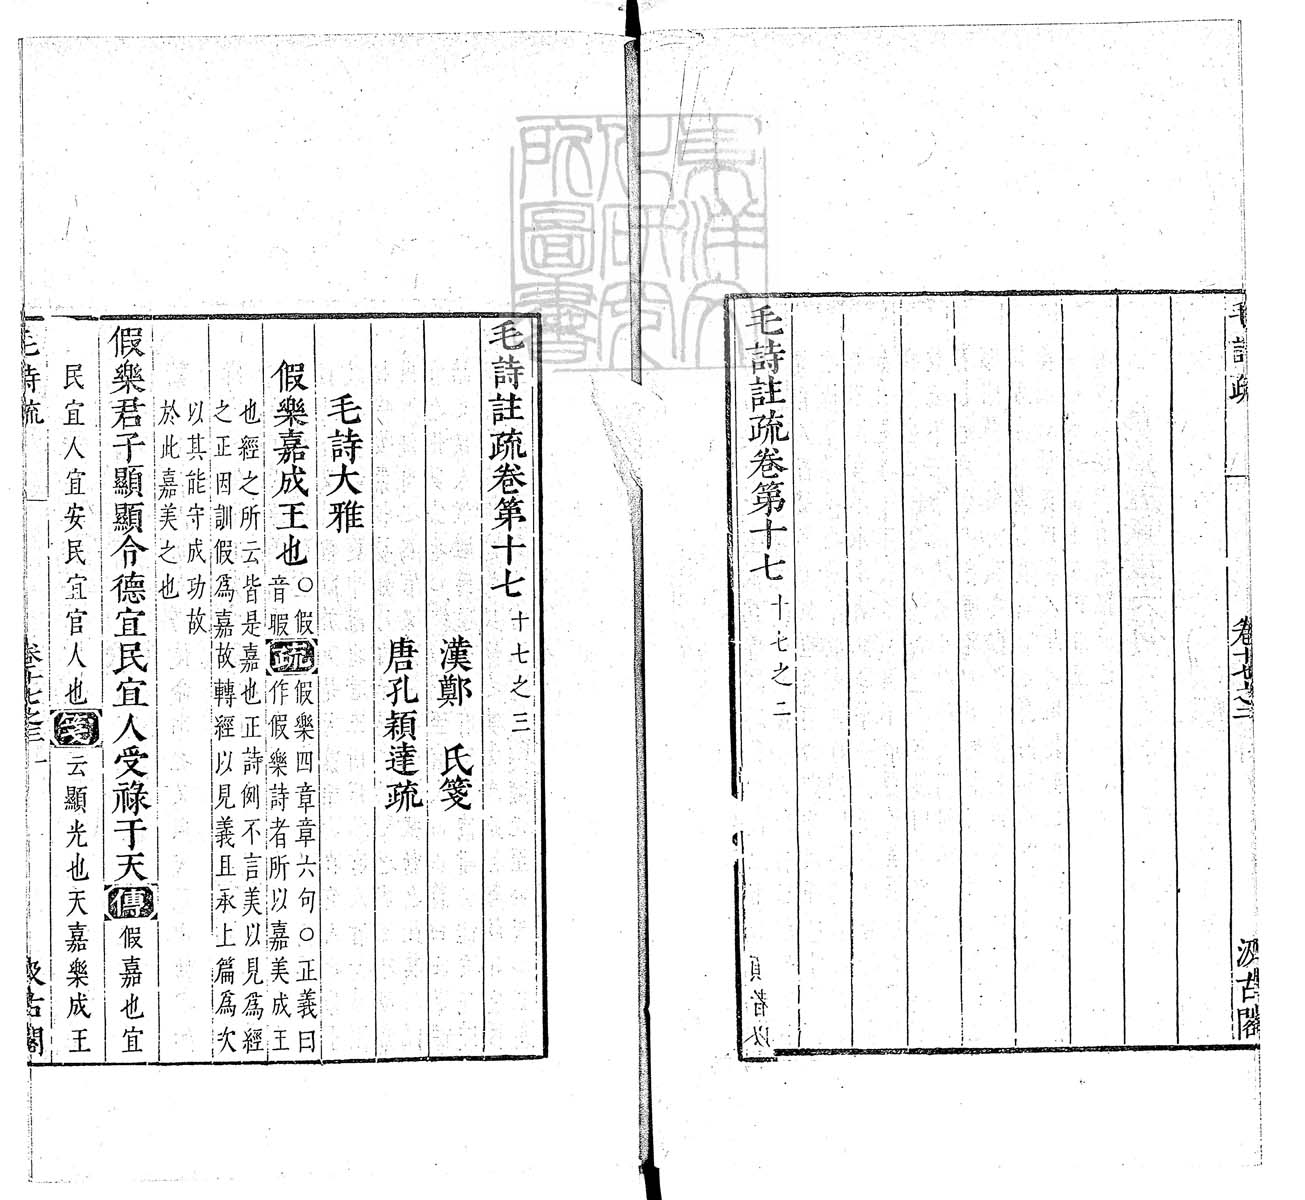 毛詩疏 卷十七之二 汲古閣
毛詩註疏卷第十七 十七之二
東洋文
化研究
所圖書
毛詩註疏卷第十七 十七之三
漢鄭 氏箋
唐孔穎達疏
毛詩大雅
假樂嘉成王也 ○假音暇 疏 假樂四章章六句○正義曰
作假樂詩者所以嘉美成王
也經之所云皆是嘉也正詩例不言美以見爲經
之正因訓假爲嘉故轉經以見義且承上篇爲次
以其能守成功故
於此嘉美之也
假樂君子顯顯令德宜民宜人受祿于天 傳 假嘉也宜
民宜人宜安民宜官人也 箋 云顯光也天嘉樂成王
毛詩疏 卷十七之三 一 汲古閣